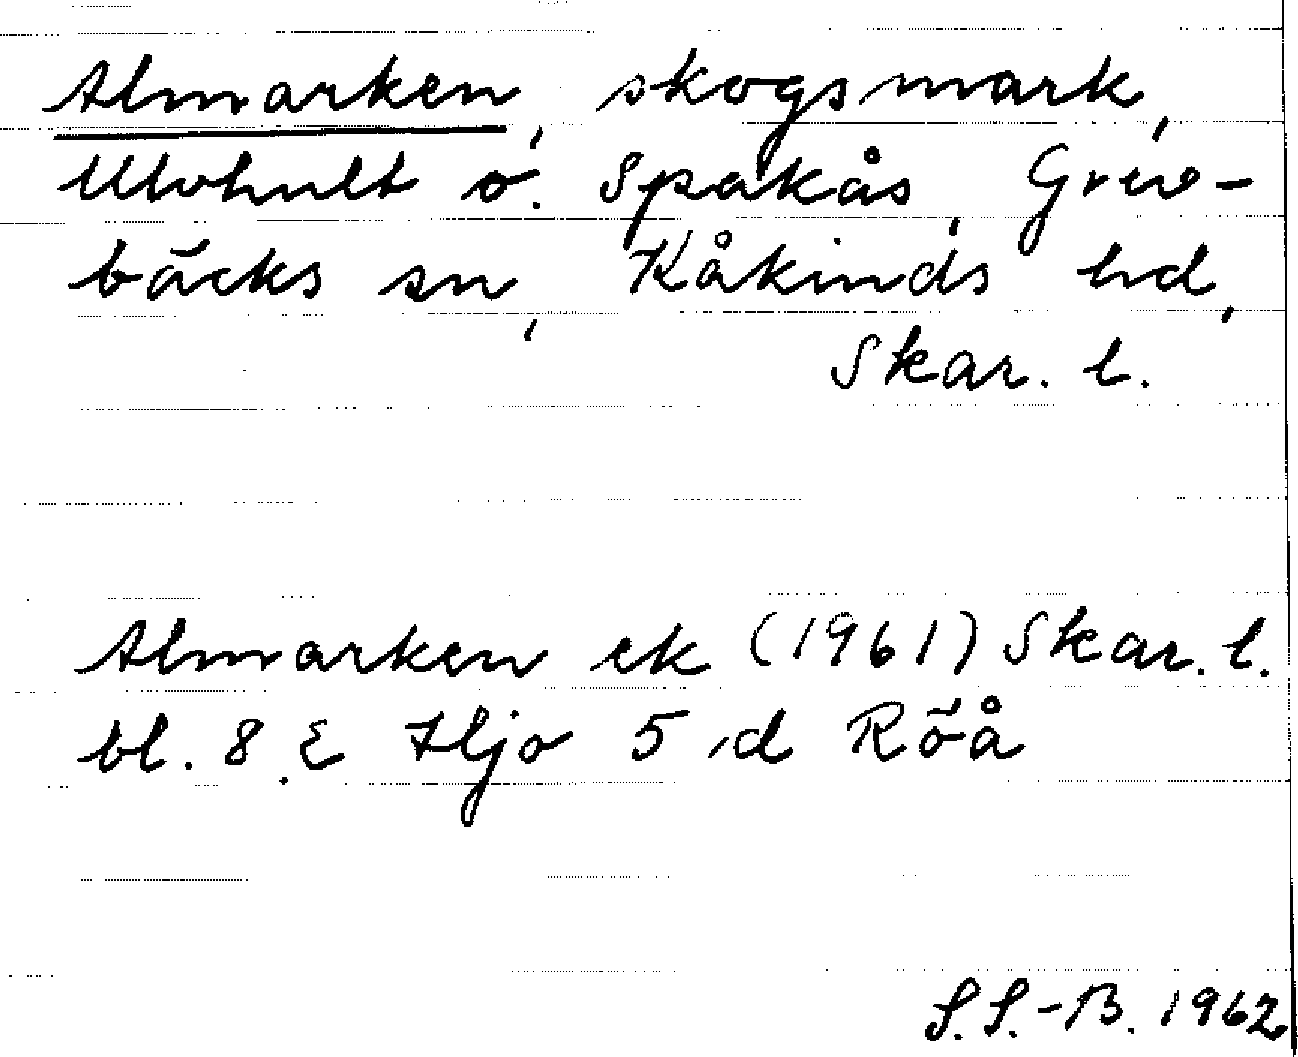 Almarken, skogsmark,
Ulvhult o. Spakås, Grev-
bäcks sn, Kåkinds hd,
Skar. l.
Almarken ek (1961) Skar. l.
bl. 8 E Hjo 5 d Röå
S. S.-B. 1962